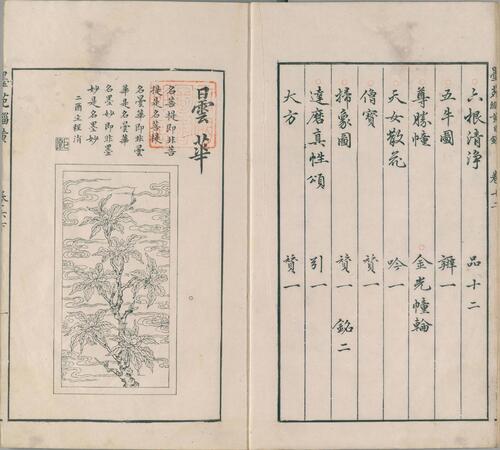 六根清淨 品十二
五牛圖 辨一
尊勝幢 金光幢輪
天女散花 吟一
僧寶 贊一
掃象圖 贊一 銘二
達磨真性頌 引一
大方 贊一
曇華
名菩提即非菩
提是名菩提
名曇華即非曇
華是名曇華
名墨妙即非墨
妙是名墨妙
二酉主程涓
墨苑緇黃